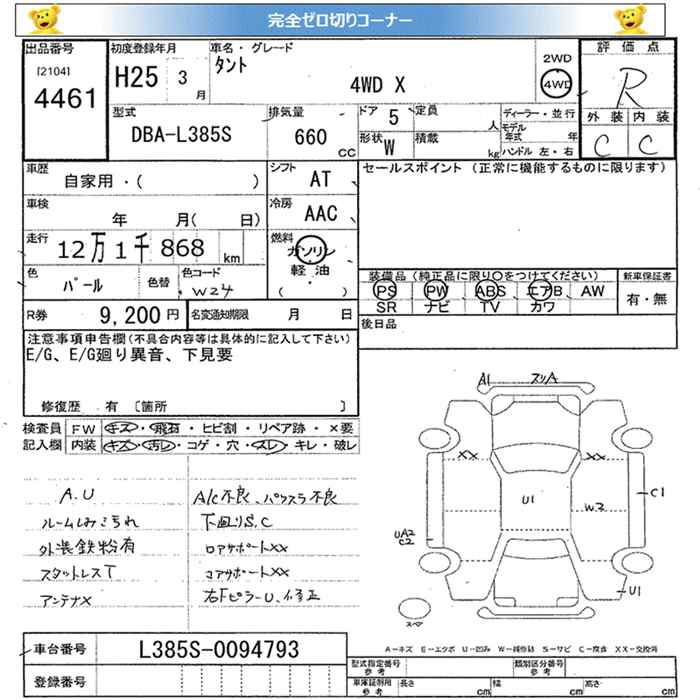 完全ゼロ切りコーナー
出品番号 初度登録年月 車名・グレード 2WD 評価点
[2104] H25 3月 タント 4WD X 4WD R
4461
型式 排気量 ドア 5 定員 人 ディーラー・並行 外装 内装
DBA-L385S 660 CC 形状 W 積載 kg モデル年式 年 C C
ハンドル 左・右
車歴 シフト セールスポイント (正常に機能するものに限ります)
自家用・( ) AT
車検 年 月( 日) 冷房 AAC
走行 12万1千868 km 燃料 ガソリン
軽油
( )
色 パール 色替 色コード W24
装備品(純正品に限り○をつけてください) 新車保証書
PS PW ABS エアB AW 有・無
SR ナビ TV カワ
R券 9,200円 名変通知期限 月 日 後日品
注意事項申告欄(不具合内容等は具体的に記入して下さい)
E/G、E/G廻り異音、下見要
修復歴 有 〔箇所 〕
検査員 FW キズ・飛石・ヒビ割・リペア跡・×要
記入欄 内装 キズ・汚レ・コゲ・穴・スレ・キレ・破レ
A.U A/C不良、パワスラ不良
ルームしみこ
ちれ 下廻りS,C
外装鉄粉有 ロアサポートXX
スタットレスT コアサポートXX
アンテナX 右Fピラー U、修正
A1 スリA
XX XX
U1 W2 C1
UA2
C2
U1
スマ
A-キズ E-エクボ U-凹み W-補修跡 S-サビ C-腐食 XX-交換済
車台番号 L385S-0094793
登録番号
型式指定番号 参考 類別区分番号 参考
車庫証明用 参考 長さ cm 幅 cm 高さ cm